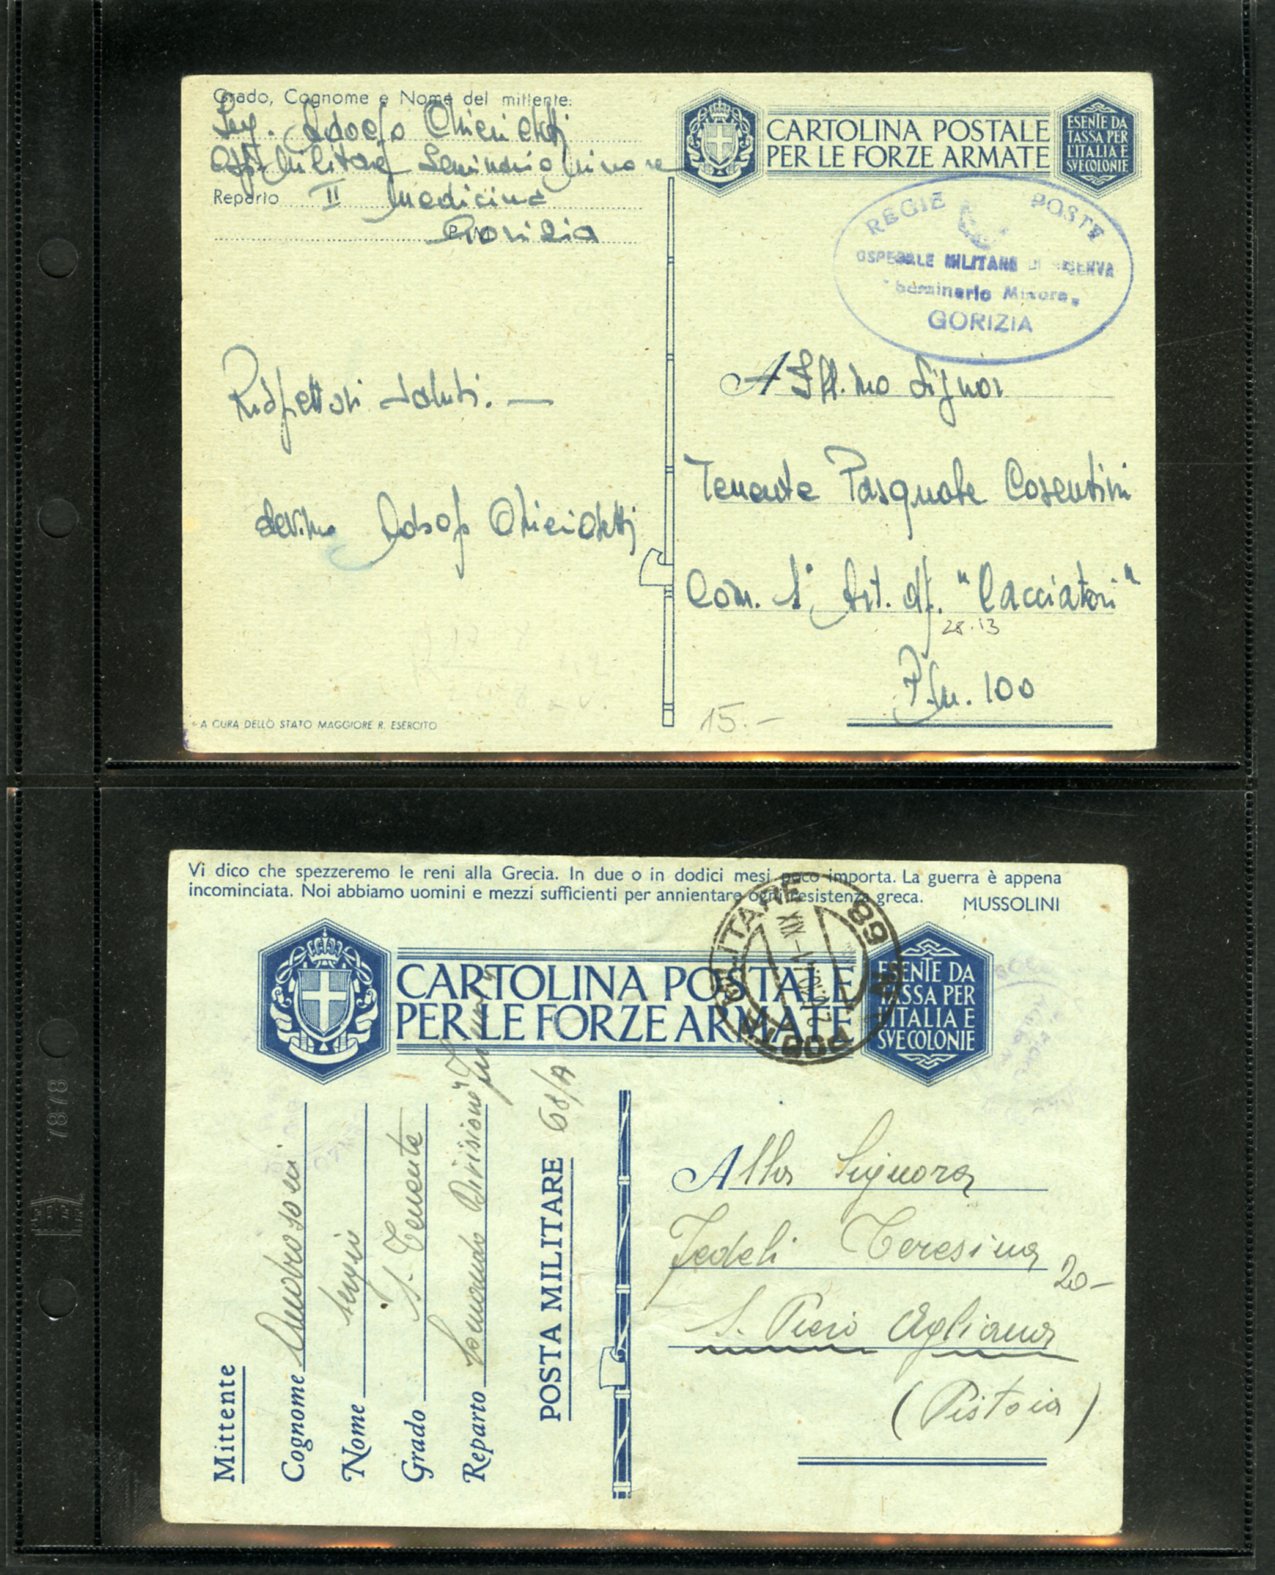 Grado, Cognome e Nome del mittente:
Reparto II Medicina
Gorizia
CARTOLINA POSTALE
PER LE FORZE ARMATE
ESENTE DA
TASSA PER
L'ITALIA E
SVE COLONIE
REGIE POSTE
OSPEDALE MILITARE DI RISERVA
"Seminario Minore"
GORIZIA
Rispettosi saluti. —
dev.mo
A Ill.mo Signor
Tenente Pasquale Cosentini
Com. 1° Art. df. "Cacciatori"
28.13
P.M. 100
15.-
A CURA DELLO STATO MAGGIORE R. ESERCITO
Vi dico che spezzeremo le reni alla Grecia. In due o in dodici mesi poco importa. La guerra è appena
incominciata. Noi abbiamo uomini e mezzi sufficienti per annientare ogni resistenza greca. MUSSOLINI
CARTOLINA POSTALE
PER LE FORZE ARMATE
ESENTE DA
TASSA PER
L'ITALIA E
SVE COLONIE
POSTA MILITARE
68
Mittente
Cognome
Nome Sergio
Grado S. Tenente
Reparto Comando Divisione
POSTA MILITARE 68/A
Alla Signora
Fedeli Teresina
20-
S. Piero Agliana
(Pistoia)
7878